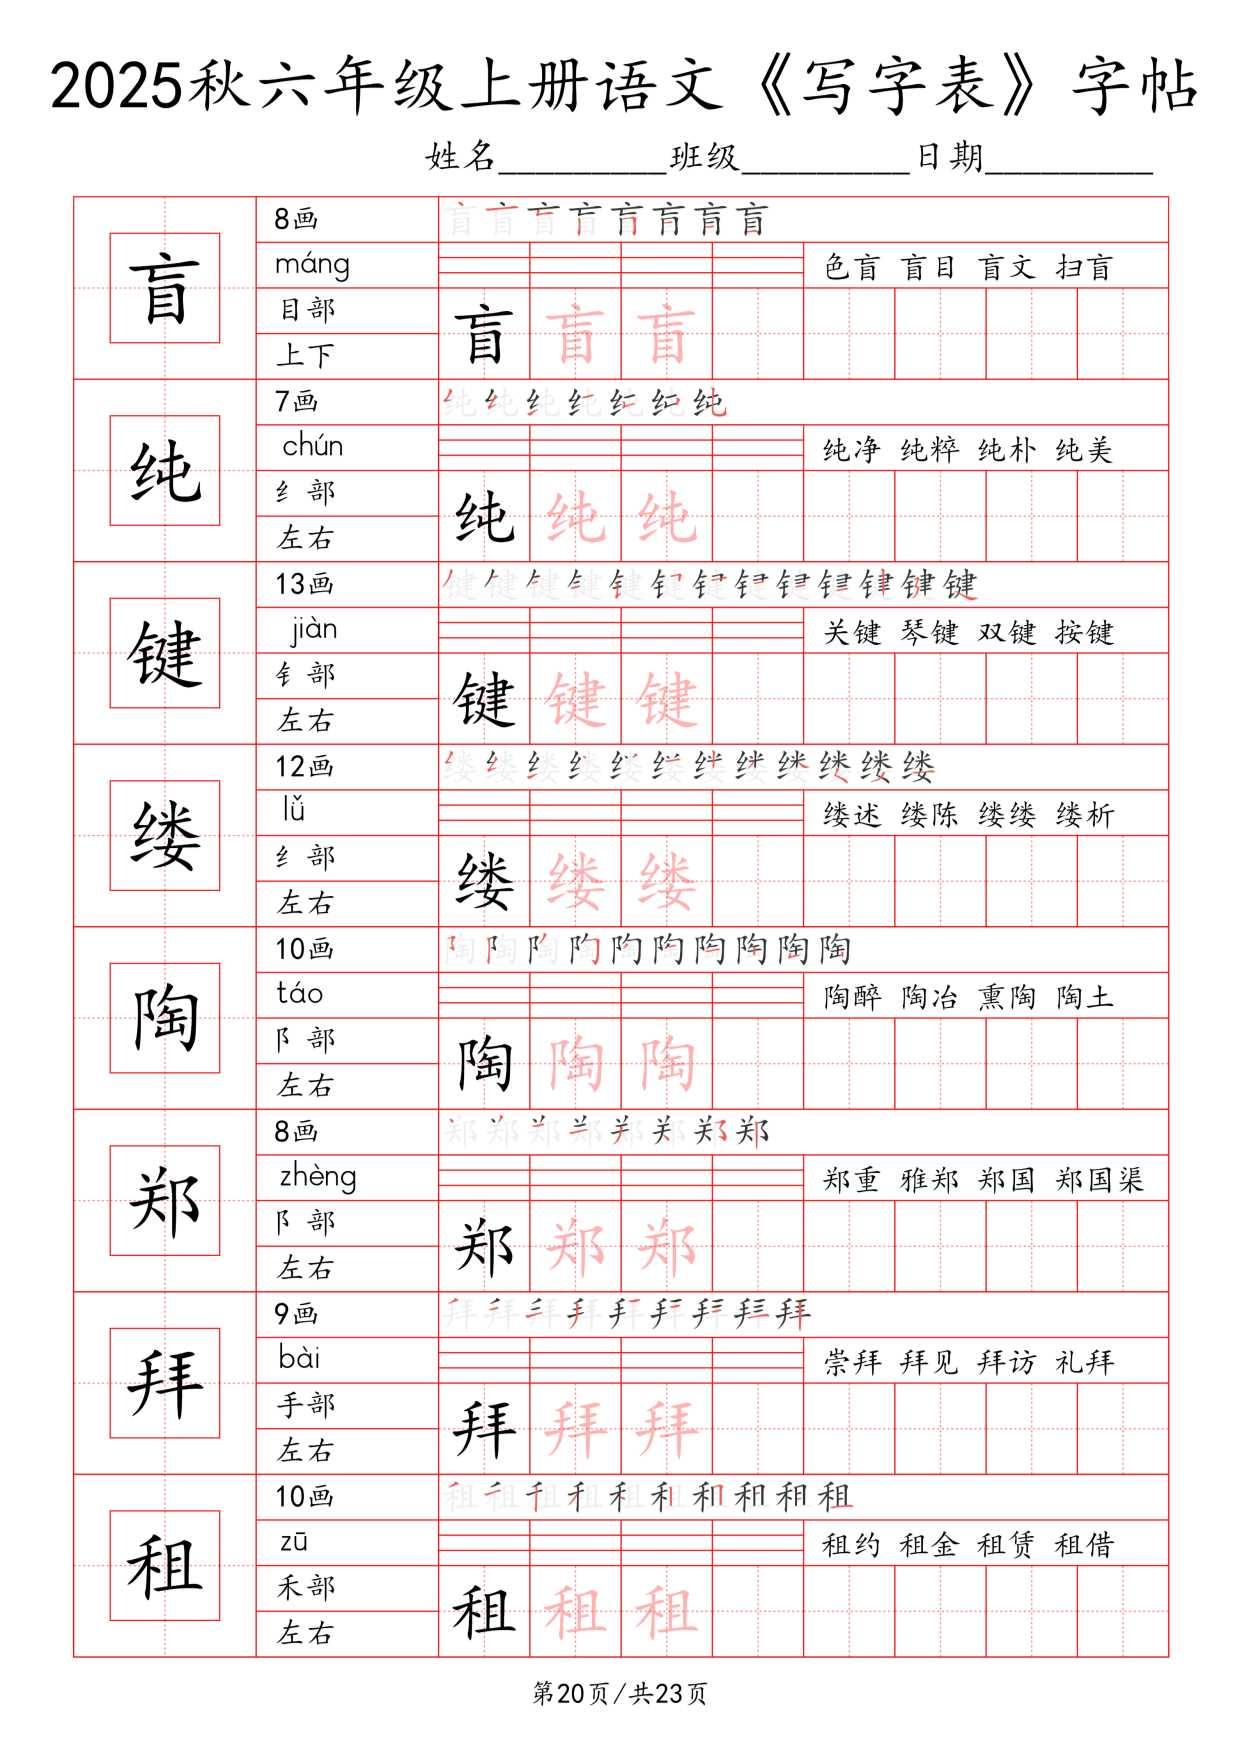 2025秋六年级上册语文《写字表》字帖
姓名_________班级_________日期_________
盲
8画
盲盲盲盲盲盲盲盲
máng
色盲 盲目 盲文 扫盲
目部
上下
盲 盲 盲
纯
7画
纯纯纯纯纯纯纯
chún
纯净 纯粹 纯朴 纯美
纟部
左右
纯 纯 纯
键
13画
键键键键键键键键键键键键键
jiàn
关键 琴键 双键 按键
钅部
左右
键 键 键
缕
12画
缕缕缕缕缕缕缕缕缕缕缕缕
lǚ
缕述 缕陈 缕缕 缕析
纟部
左右
缕 缕 缕
陶
10画
陶陶陶陶陶陶陶陶陶陶
táo
陶醉 陶冶 熏陶 陶土
阝部
左右
陶 陶 陶
郑
8画
郑郑郑郑郑郑郑郑
zhèng
郑重 雅郑 郑国 郑国渠
阝部
左右
郑 郑 郑
拜
9画
拜拜拜拜拜拜拜拜拜
bài
崇拜 拜见 拜访 礼拜
手部
左右
拜 拜 拜
租
10画
租租租租租租租租租租
zū
租约 租金 租赁 租借
禾部
左右
租 租 租
第20页/共23页